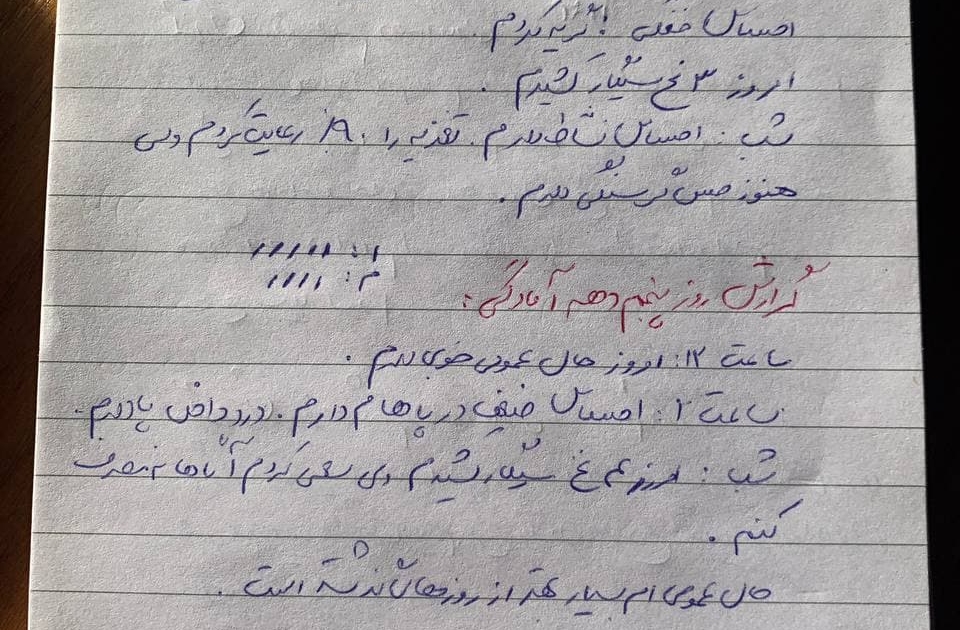 احساس خفگی! گریه کردم.
امروز ۳ نخ سیگار کشیدم.
شب: احساس نشاط دارم. تغذیه را ۹۰٪ رعایت کردم ولی
هنوز حس گرسنگی دارم.
ا: ۱۱۱۱۱۱
م: ۱۱۱۱
گزارش روز پنجم دهه آمادگی:
ساعت ۱۲: امروز حال عمومی خوبی دارم.
ساعت ۲: احساس ضعیف در پاها م دارم. درد داخل پا دارم.
شب: امروز ۴ نخ سیگار کشیدم ولی سعی کردم آنها مصرف
کنم.
حال عمومی ام بسیار بهتر از روزهای گذشته است.